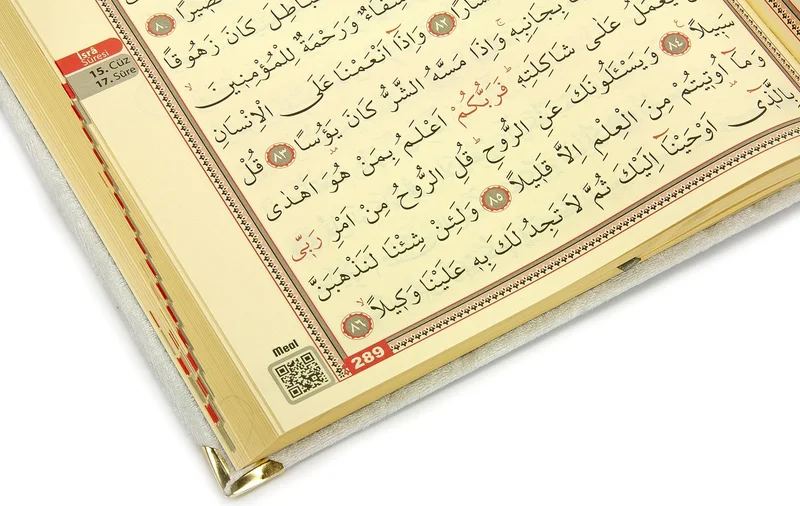 ٨٠
الْبَاطِلَ كَانَ زَهُوقًا
شِفَٓاءٌ وَرَحْمَةٌ لِلْمُؤْمِنٖينَ
٨٢ وَاِذَٓا اَنْعَمْنَا عَلَى الْاِنْسَانِ
بِجَانِبِهٖ وَاِذَا مَسَّهُ الشَّرُّ كَانَ يَؤُسًا ٨٣ قُلْ
يَعْمَلُ عَلٰى شَاكِلَتِهٖ فَرَبُّكُمْ اَعْلَمُ بِمَنْ هُوَ اَهْدٰى
سَبٖيلًا ٨٤ وَيَسْـَٔلُونَكَ عَنِ الرُّوحِ قُلِ الرُّوحُ مِنْ اَمْرِ رَبّٖى
وَمَٓا اُوتٖيتُمْ مِنَ الْعِلْمِ اِلَّا قَلٖيلًا ٨٥ وَلَئِنْ شِئْنَا لَنَذْهَبَنَّ
بِالَّذٖٓى اَوْحَيْنَٓا اِلَيْكَ ثُمَّ لَا تَجِدُ لَكَ بِهٖ عَلَيْنَا وَكٖيلًا ٨٦
İsrâ
Sûresi
15. Cüz
17. Sûre
Meal
289